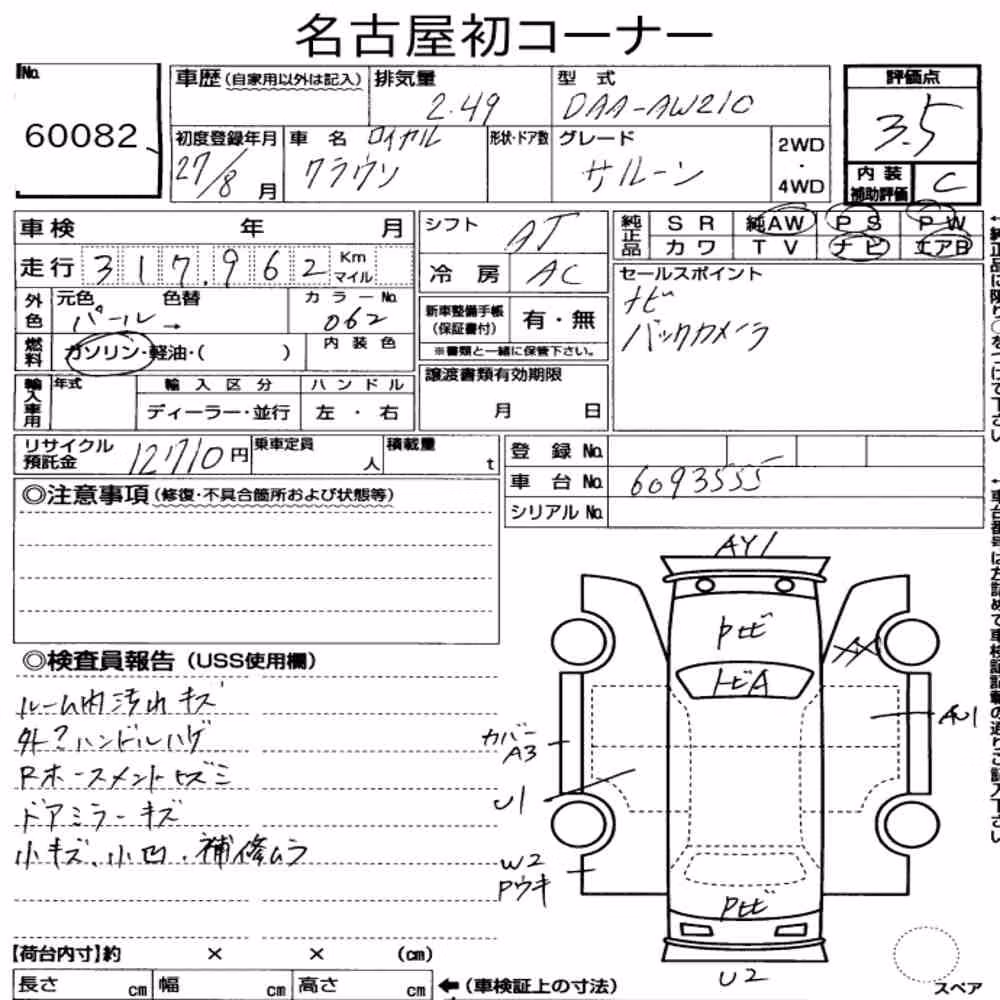 名古屋初コーナー
No.
60082
車歴 (自家用以外は記入)
排気量
2.49
型 式
DAA-AW210
評価点
3.5
初度登録年月
27/8 月
車 名 ロイヤル
クラウン
形状・ドア数
グレード
サルーン
2WD
・
4WD
内 装
補助評価
C
車検 年 月
走行 317,962 Km
マイル
シフト
AT
冷 房
AC
純正品
S R 純AW P S P W
カ ワ T V ナ ビ エアB
外色
元色 色替
パール→
カラーNo.
062
燃料
ガソリン・軽油・( )
内 装 色
新車整備手帳
(保証書付)
有・無
※書類と一緒に保管下さい。
セールスポイント
ナビ
バックカメラ
輸入車用
年式
輸 入 区 分
ディーラー・並行
ハ ン ド ル
左 ・ 右
譲渡書類有効期限
月 日
リサイクル
預託金
12710円
乗車定員
人
積載量
t
登 録 No.
車 台 No. 6093555
シリアル No.
◎注意事項 (修復・不具合箇所および状態等)
◎検査員報告 (USS使用欄)
ルーム内汚れキズ
ハンドルハゲ
Rホースメントヒズミ
ドアミラーキズ
小キズ、小凹、補修ムラ
AY1
Pセビ
トビA
XX
AU1
カバー
A3
U1
W2
Pウキ
Pセビ
U2
スペア
【荷台内寸】約 × × (cm)
長さ cm 幅 cm 高さ cm
←(車検証上の寸法)